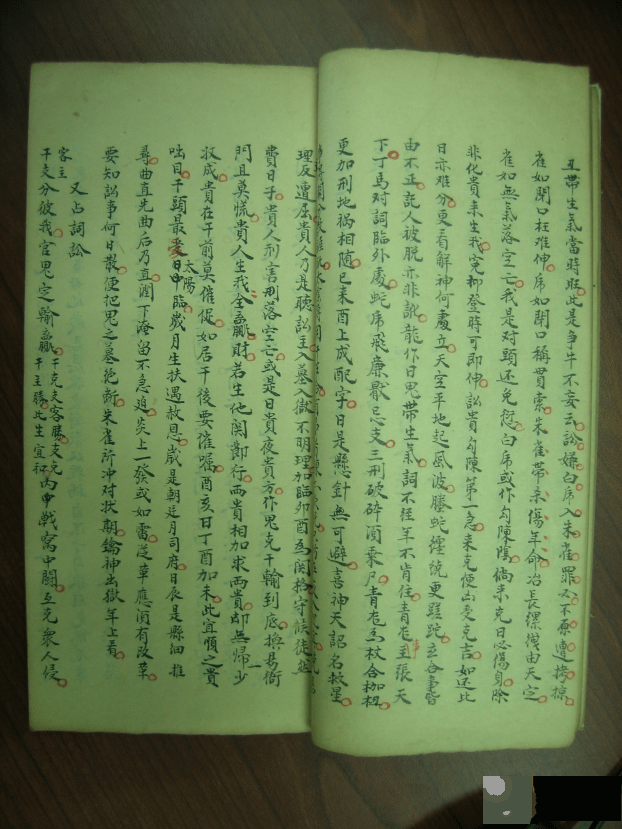 丑帶生氣當時旺此是爭牛不妄云訟嫌白虎入朱雀罪人不票遭
雀如開口枉难伸虎如開口稱貫索朱雀帶未傷年命冶長縲絏由天定
雀如無氣落空亡我是对頭还免愆白虎或作勾陳陰僑来克日必傷身除
非化貴来生我冤抑登時可即伸訟貴勾陳第一急来克便凶受克吉如还比
日亦难分更看解神何處立天空平地起風波螣蛇纏繞更蹉跎玄合
由不正訟人被脱亦非訛龍作日鬼帶生氣詞不経年不肯住青龙主張天
下丁馬对詞臨外處蛇虎飛廉厭忌支三刑破碎須乘尸青龙为杖合枷杻
更加刑地祸相随巳未酉上成配字日是懸針無可避喜神天認名救星
理反遭屈貴人乃是聽訟主入墓入獄不明理加臨卯酉为関格守候徒然
費日子貴人刑害刑落空亡或是日貴夜貴方作鬼克干輸到底換易衙
門且莫慌貴人生我全贏財若生他関節行两貴相加求两貴却無歸少
收成貴在干前莫催促如居干後要催囑酉亥日丁酉加未此宜順之貴
咄目干頭最爱日中太陽臨歲月生扶遇赦恩歲是朝廷月司府日辰是縣細推
尋曲直先曲后乃直潤下淹留不急迫炎上一發或如雷從革應須有改革
要知訟事何日散便把鬼之墓绝断朱雀所冲对状期鑰神出獄年上看
又占詞訟
客主
干支分彼我官鬼定輸贏干克支客勝支克干主勝比生宜和内中戰窩中鬭互克衆人侵